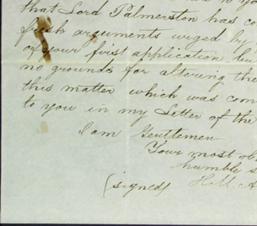 that Lord Palmerston has co
fresh arguments urged by
of your first application bu
no grounds for altering the
this matter which was com
to you in my Letter of the
I am Gentlemen
Your most ob
humble s
(signed)